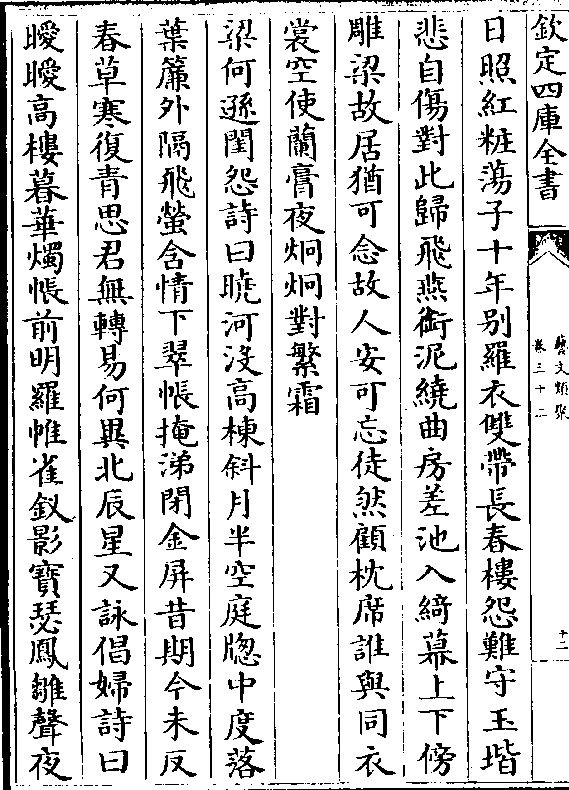 欽定四庫全書
藝文類聚
卷三十二
十二
日照紅粧蕩子十年别羅衣雙帶長春樓怨難守玉堦
悲自傷對此歸飛燕銜泥繞曲房差池入綺幕上下傍
雕梁故居猶可念故人安可忘徒然顧枕席誰與同衣
裳空使蘭膏夜炯炯對繁霜
梁何遜閨怨詩曰曉河沒高棟斜月半空庭牕中度落
葉簾外隔飛螢含情下翠帳掩涕閉金屏昔期今未反
春草寒復青思君無轉易何異北辰星又詠倡婦詩曰
曖曖高樓暮華燭帳前明羅帷雀釵影寶瑟鳳雛聲夜